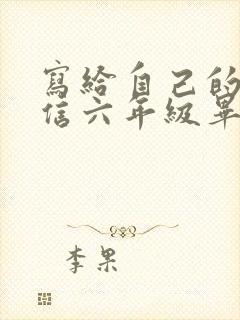 寫給自己的
信六年級畢
李果